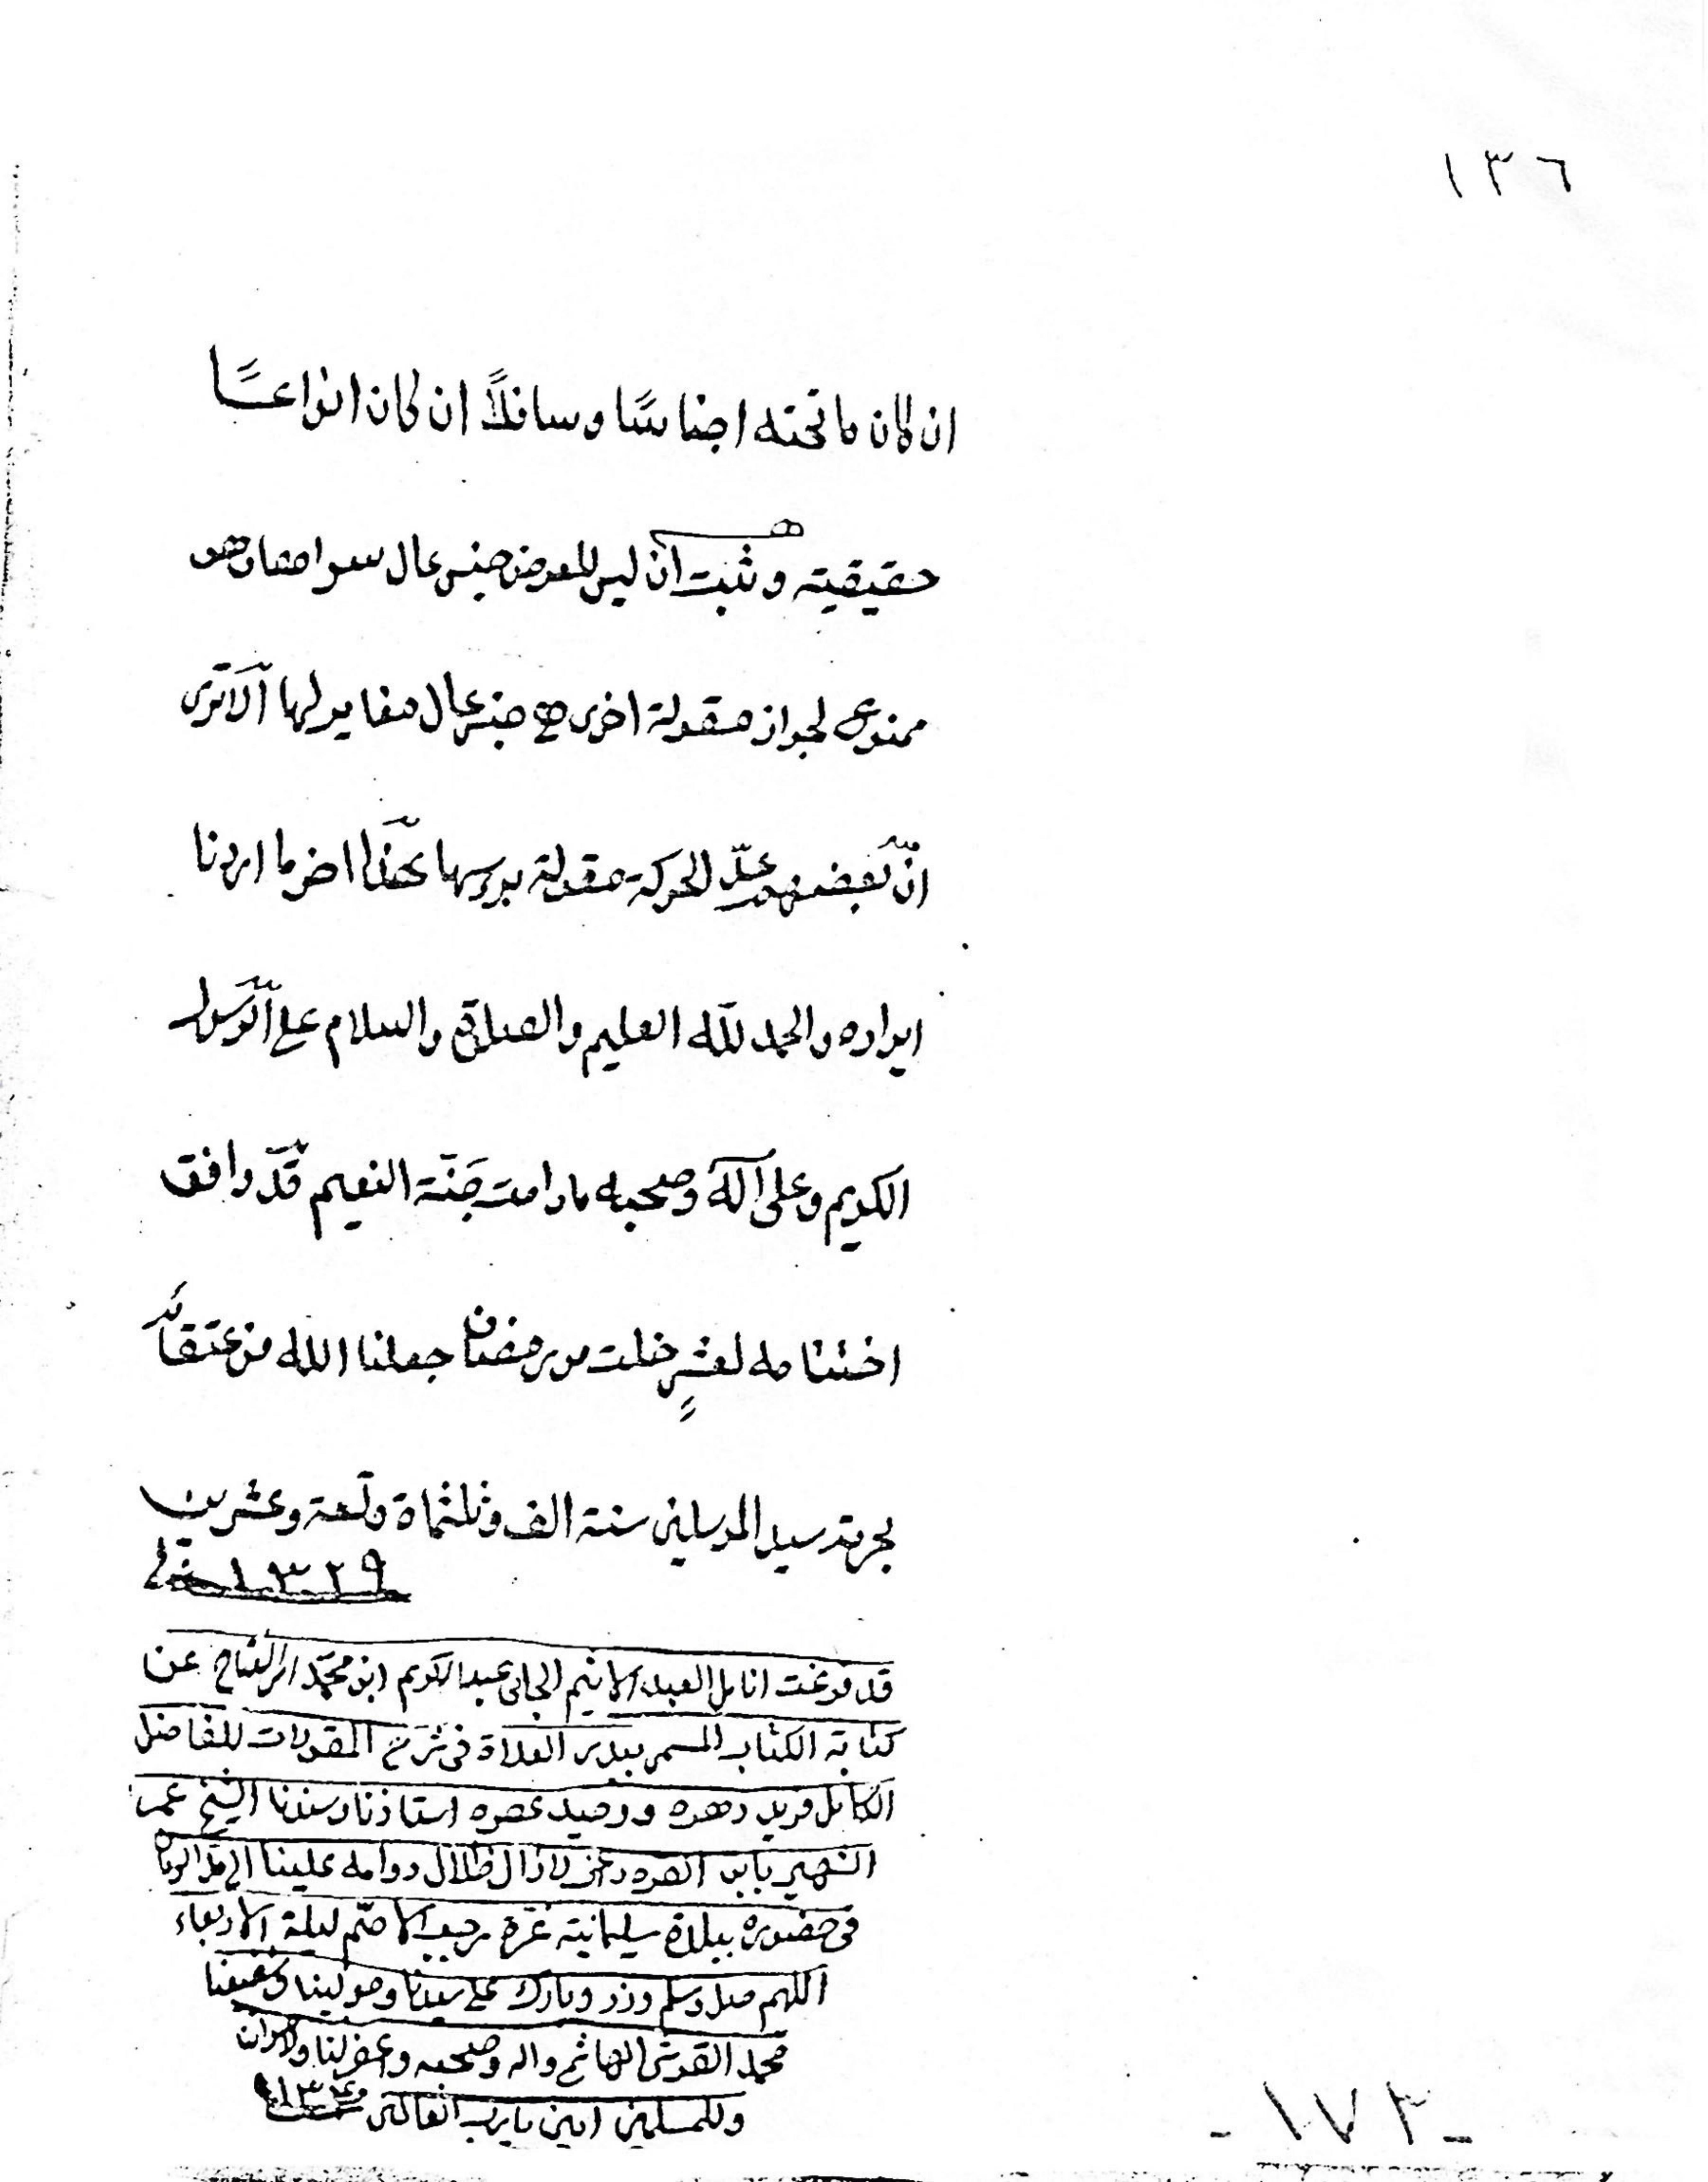 ١٣٦
ان كان ما تحته اجناسًا وسافلًا ان كان انواعًا
حقيقية وثبت ان ليس للعرض جنس عال سواهما وهو
ممنوع لجواز مقولة اخرى هى جنس عال مغاير لها الا ترى
انّ بعضهم عدّ الحركة مقولة برسها هذا اخر ما اردنا
ايراده والحمد لله العليم والصلاة والسلام على الرّسول
الكريم وعلى آله وصحبه مادامت جنّة النعيم قد وافق
اختتامه لعشرٍ خلت من رمضان جعلنا الله من عتقائه
بحرمة سيد المرسلين سنة الف وثلثماة وتسعة وعشرين
١٣٢٩
قد فرغت انامل العبد الاثيم الجانى عبدالكريم ابن محمّد عن
كتابة الكتاب المسمى ببدر العلاة فى شرح المقولات للفاضل
الكامل فريد دهره ووحيد عصره استاذنا وسندنا الشيخ عمر
الشهير بابن القره داغى لازال ظلال دوامه علينا الى
فى حضوره ببلدة سليمانية غرّة رجب الاصّم ليلة الاربعاء
اللهم صل وسلم وزد وبارك على سيدنا ومولينا وشفيعنا
محمد القرشى الهاشمى واله وصحبه واغفر لنا
وللمسلمين امين يا رب العالمين
- ١٧٣ -